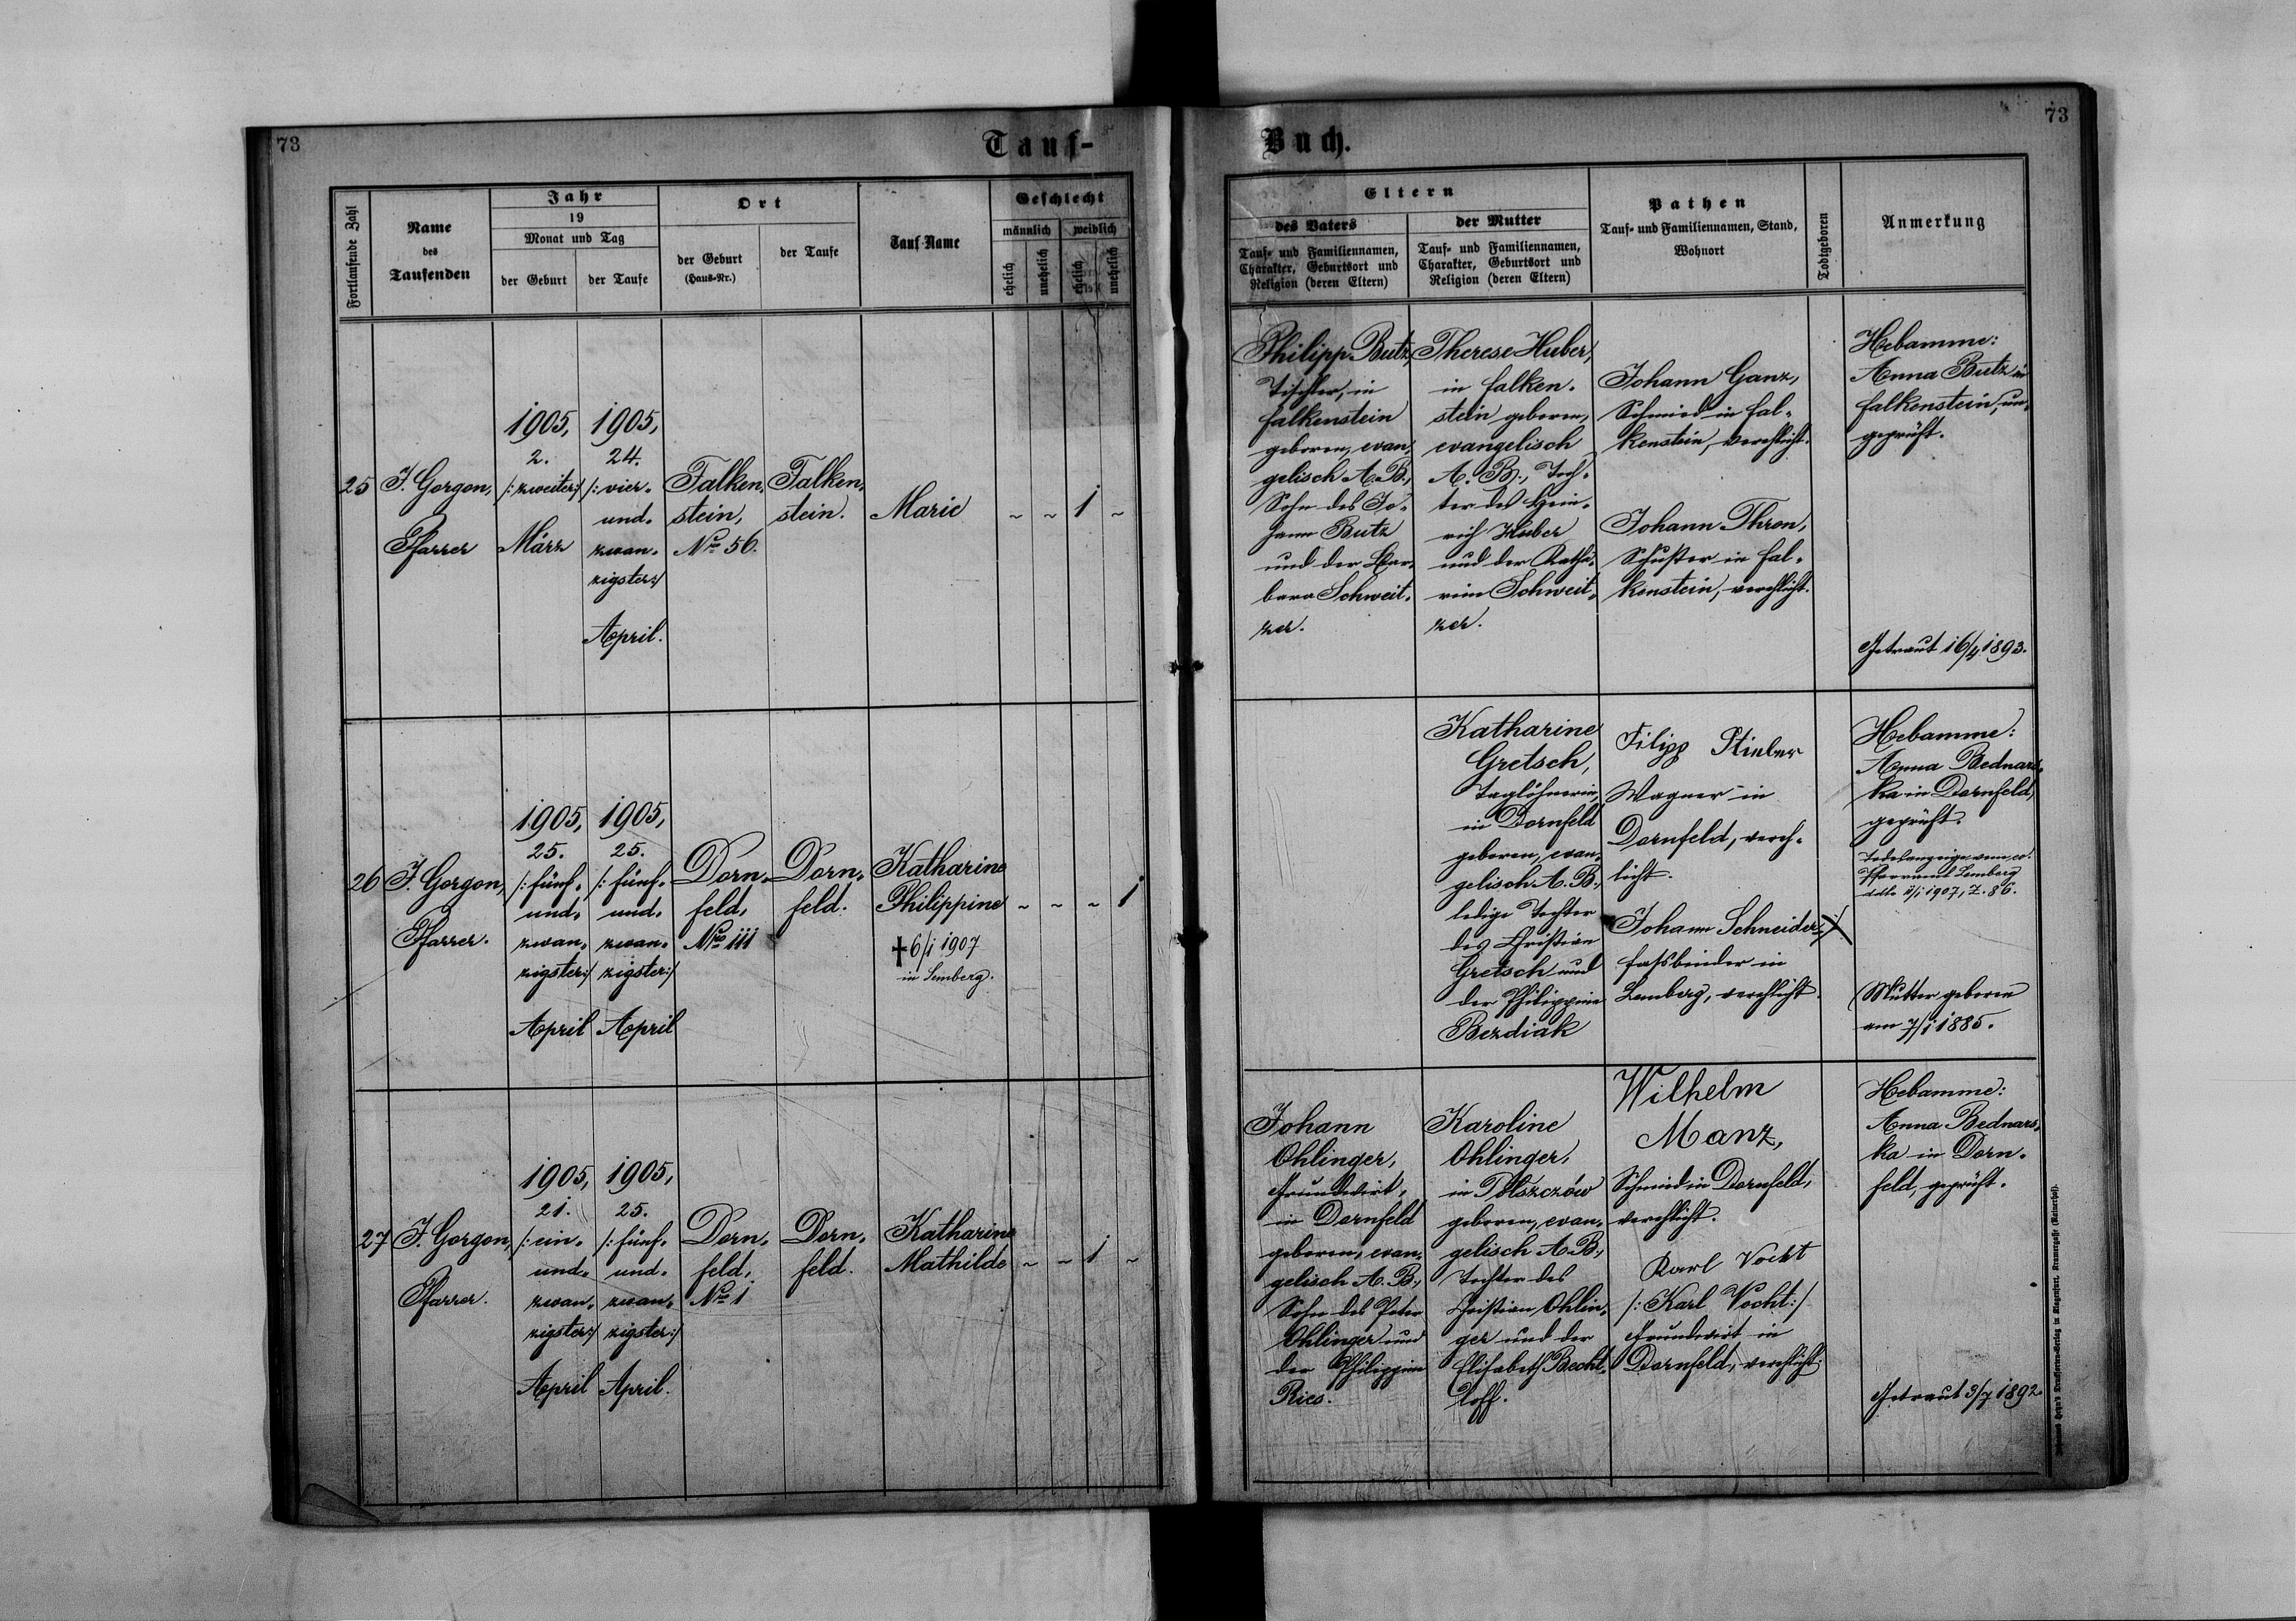 73
Tauf-
Fortlaufende Zahl
Name
des
Taufenden
Jahr
19
Monat und Tag
der Geburt
der Taufe
Ort
der Geburt
(Haus-Nr.)
der Taufe
Tauf-Name
Geschlecht
männlich
weiblich
ehelich
unehelich
ehelich
unehelich
25
J. Gorgon,
Pfarrer
1905,
2.
/: zweiter :/
März
1905,
24.
/: vier-
und-
zwan-
zigster :/
April.
Falken-
stein,
No 56.
Falken-
stein.
Marie
~ ~ 1 ~
26
J. Gorgon,
Pfarrer.
1905,
25.
/: fünf-
und-
zwan-
zigster :/
April
1905,
25.
/: fünf-
und-
zwan-
zigster :/
April
Dorn-
feld,
No 111
Dorn-
feld.
Katharine
Philippine
† 6/1 1907
in Lemberg.
~ ~ ~ 1
27
J. Gorgon,
Pfarrer.
1905,
21.
/: ein-
und-
zwan-
zigster :/
April
1905,
25.
/: fünf-
und-
zwan-
zigster :/
April.
Dorn-
feld,
No 1
Dorn-
feld.
Katharine
Mathilde
~ ~ 1 ~
Buch.
73
Eltern
des Vaters
Tauf- und Familiennamen,
Charakter, Geburtsort und
Religion (deren Eltern)
der Mutter
Tauf- und Familiennamen,
Charakter, Geburtsort und
Religion (deren Eltern)
Pathen
Tauf- und Familiennamen, Stand,
Wohnort
Todtgeboren
Anmerkung
Philipp Butz,
Tischler, in
Falkenstein
geboren, evan-
gelisch A. B.,
Sohn des Jo-
hann Butz
und der Bar-
bara Schweit-
zer.
Therese Huber,
in Falken-
stein geboren,
evangelisch
A. B., Toch-
ter des Hein-
rich Huber
und der Katha-
rine Schweit-
zer.
Johann Ganz,
Schmied in Fal-
kenstein, verehlicht.
Johann Thron,
Schuster in Fal-
kenstein, verehlicht.
Hebamme:
Anna Butz in
Falkenstein, un-
geprüft.
Getraut 16/4 1893.
Katharine
Gretsch,
Taglöhnerin,
in Dornfeld
geboren, evan-
gelisch A. B.,
ledige Tochter
des Christian
Gretsch und
der Philippine
Bezdiak
Filipp Stieber
Wagner in
Dornfeld, vereh-
licht.
Johann Schneider
Fassbinder in
Lemberg, verehlicht.
Hebamme:
Anna Bednars-
ka in Dornfeld,
geprüft.
Todesanzeige vom ev.
Pfarramt Lemberg
1907, Z. 86.
Mutter geboren
am 7/1 1885.
Johann
Ohlinger,
Grundwirt,
in Dornfeld
geboren, evan-
gelisch A. B.,
Sohn des Peter
Ohlinger und
der Philippine
Ries.
Karoline
Ohlinger,
in Polszczów
geboren, evan-
gelisch A. B.,
Tochter des
Christian Ohlin-
ger und der
Elisabeth Becht-
loff.
Wilhelm
Manz,
Schmied in Dornfeld,
verehlicht.
Karl Vocht
/: Karl Vocht :/
Grundwirt in
Dornfeld, verehlicht.
Hebamme:
Anna Bednars-
ka in Dorn-
feld, geprüft.
Getraut 3/7 1892.